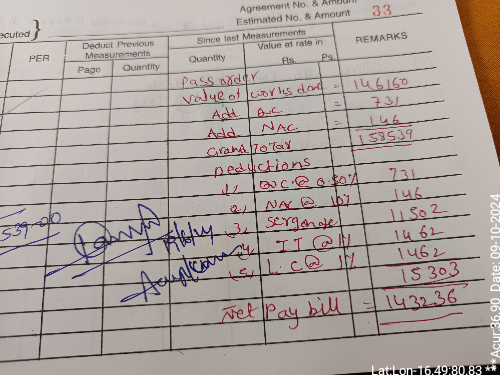 Agreement No. & Amount
Estimated No. & Amount 33
ecuted }
PER
Deduct Previous Measurements
Since last Measurements
REMARKS
Page
Quantity
Quantity
Value at rate in
Rs. Ps.
Pass order
Value of works done = 146160
Add Q.C. = 731
Add NAC = 146
Grand Total 158539
Deductions
1, Q.C. @ 0.50% 731
2, NAC @ 10% 146
(3, 11502
(4, IT @ 1% 1462
(5, L.C @ 1% 1462
15303
539-00
Net Pay bill = 143236
Lat:Lon-16.49:80.83